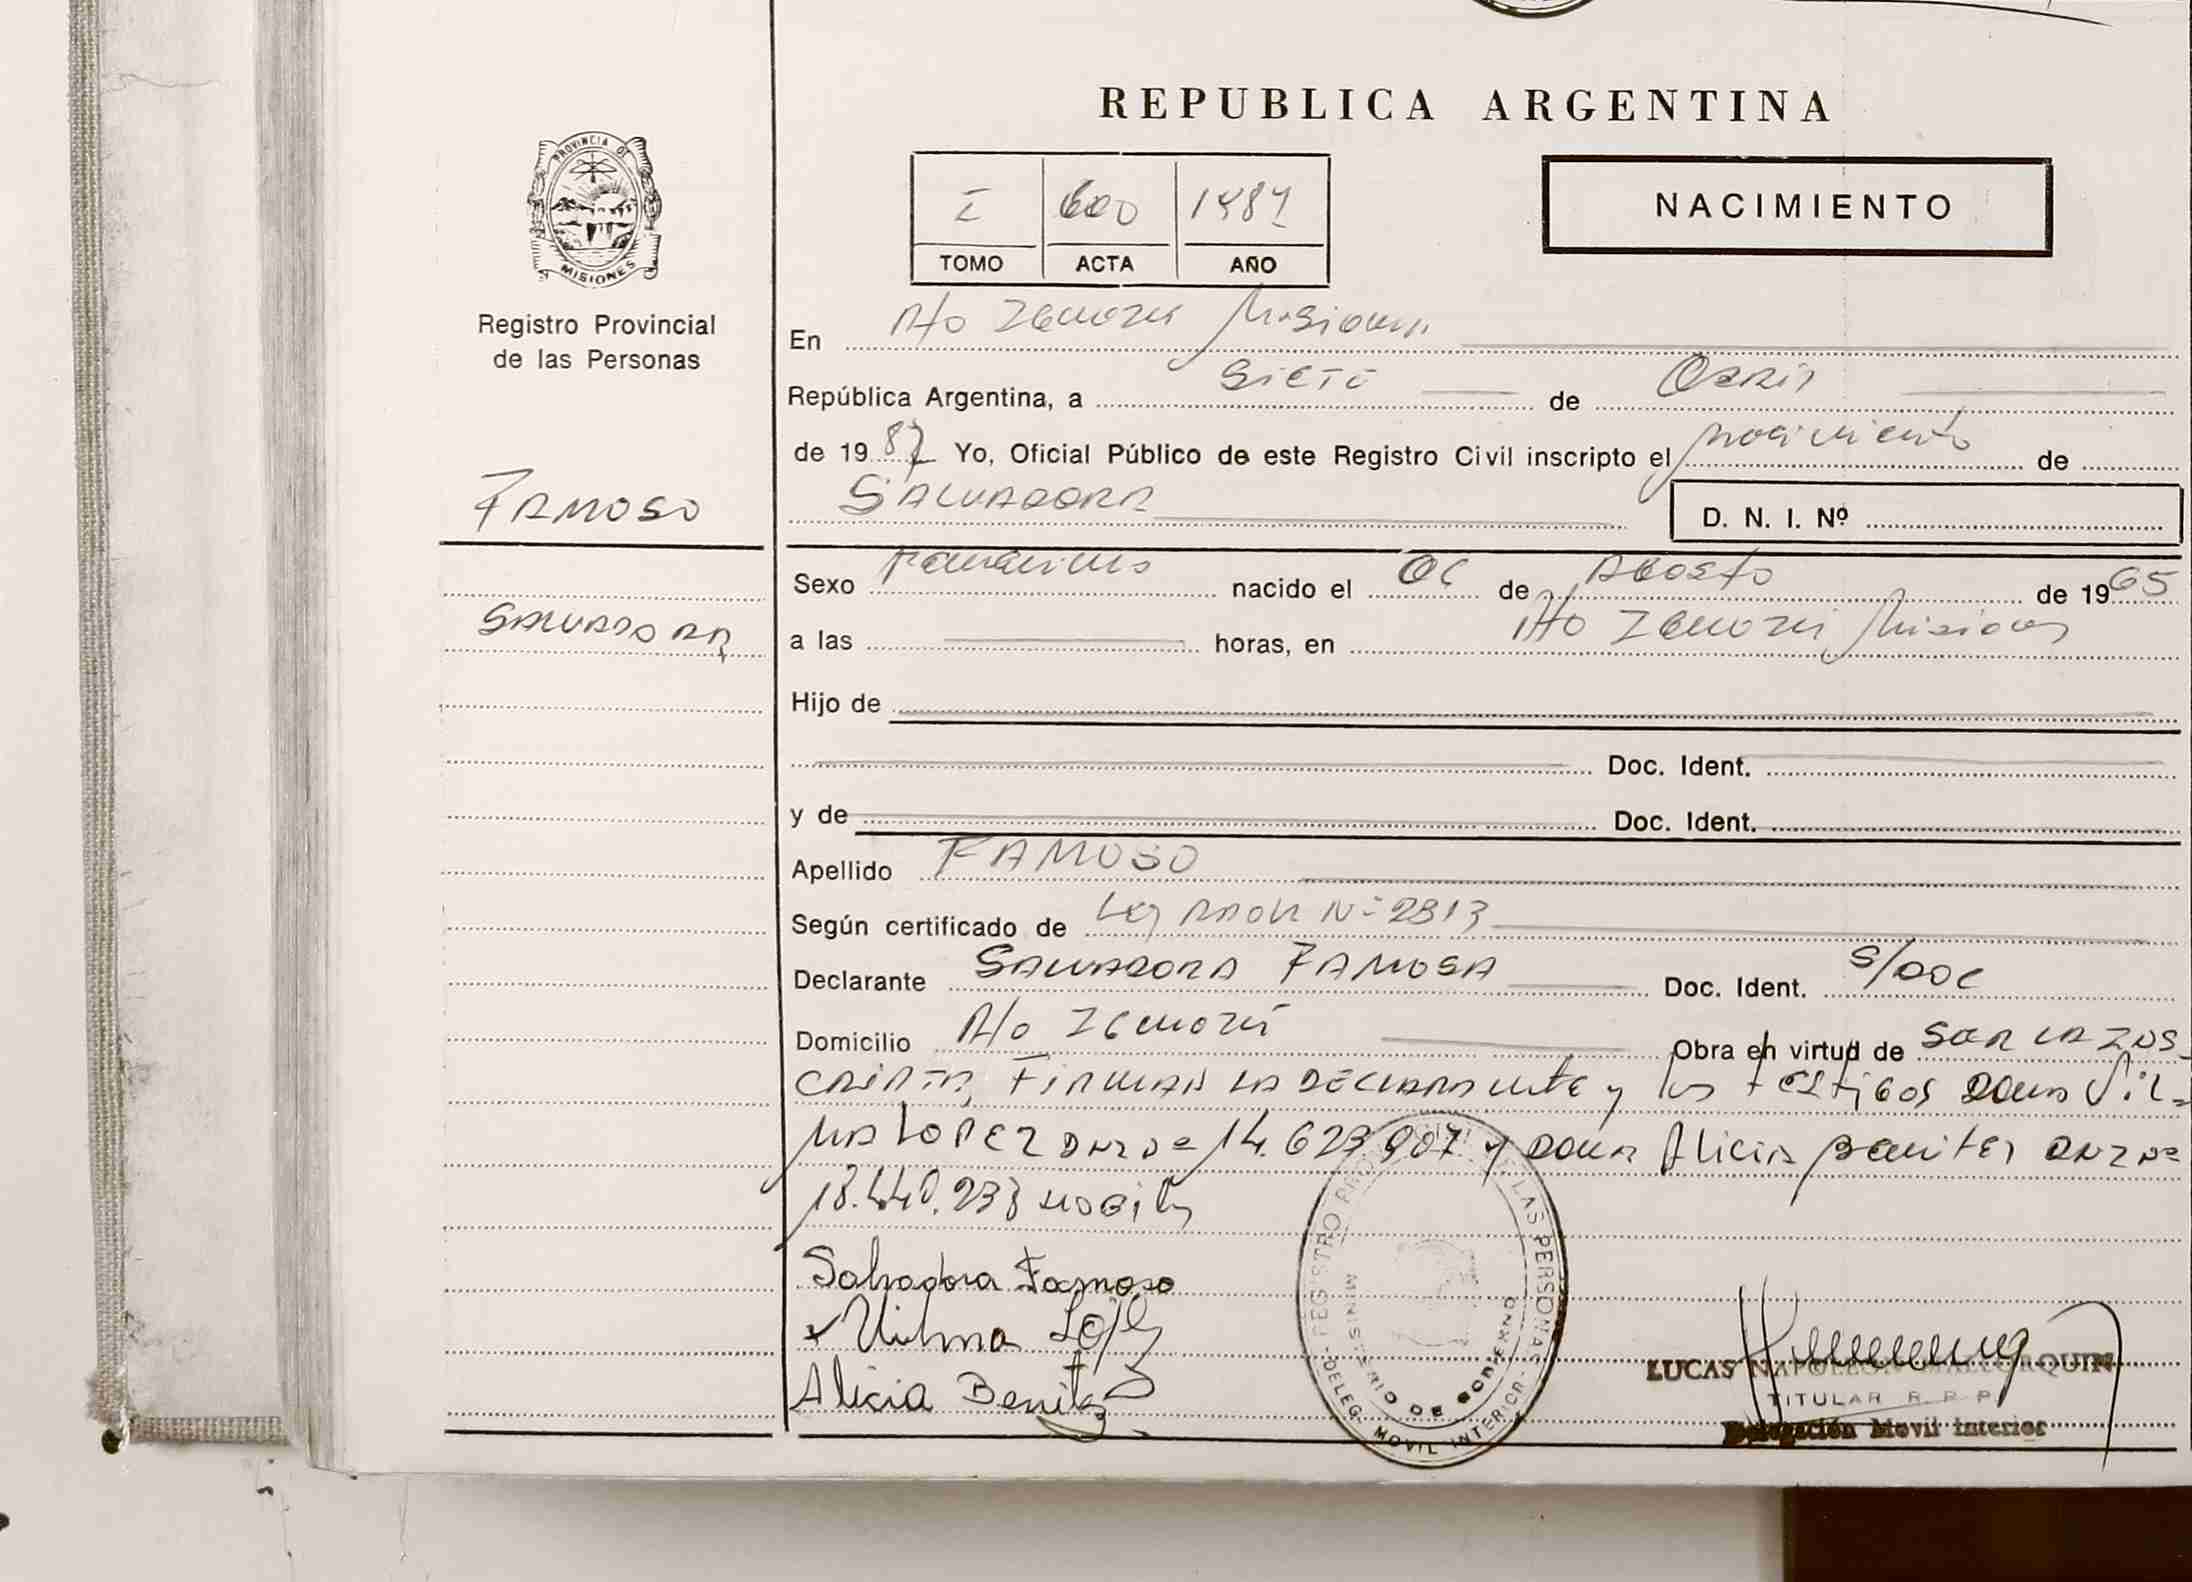 REPUBLICA ARGENTINA
PROVINCIA DE
MISIONES
Registro Provincial
de las Personas
I 600 1987
TOMO ACTA AÑO
NACIMIENTO
En Misiones
República Argentina, a Siete de
de 1987 Yo, Oficial Público de este Registro Civil inscripto el nacimiento de
SALVADORA
D. N. I. Nº
FAMOSO
SALVADORA
Sexo Femenino nacido el de AGOSTO de 1965
a las horas, en Misiones
Hijo de
Doc. Ident.
y de Doc. Ident.
Apellido FAMOSO
Según certificado de Ley Nº 2813
Declarante SALVADORA FAMOSA Doc. Ident. S/DOC
Domicilio Obra en virtud de SER LA INS-
CRIPTA, FIRMAN LA DECLARANTE y los testigos DOÑA Vil-
MA LOPEZ DNI Nº 14.623.907 y DOÑA Alicia Benitez DNI Nº
18.440.233
Salvadora Famoso
Vilma
Alicia Benitez
REGISTRO PROVINCIAL DE LAS PERSONAS
MINISTERIO DE GOBIERNO
DELEG. MOVIL INTERIOR
LUCAS NAPOLEON MALLORQUIN
TITULAR R. P. P.
Delegación Movil Interior